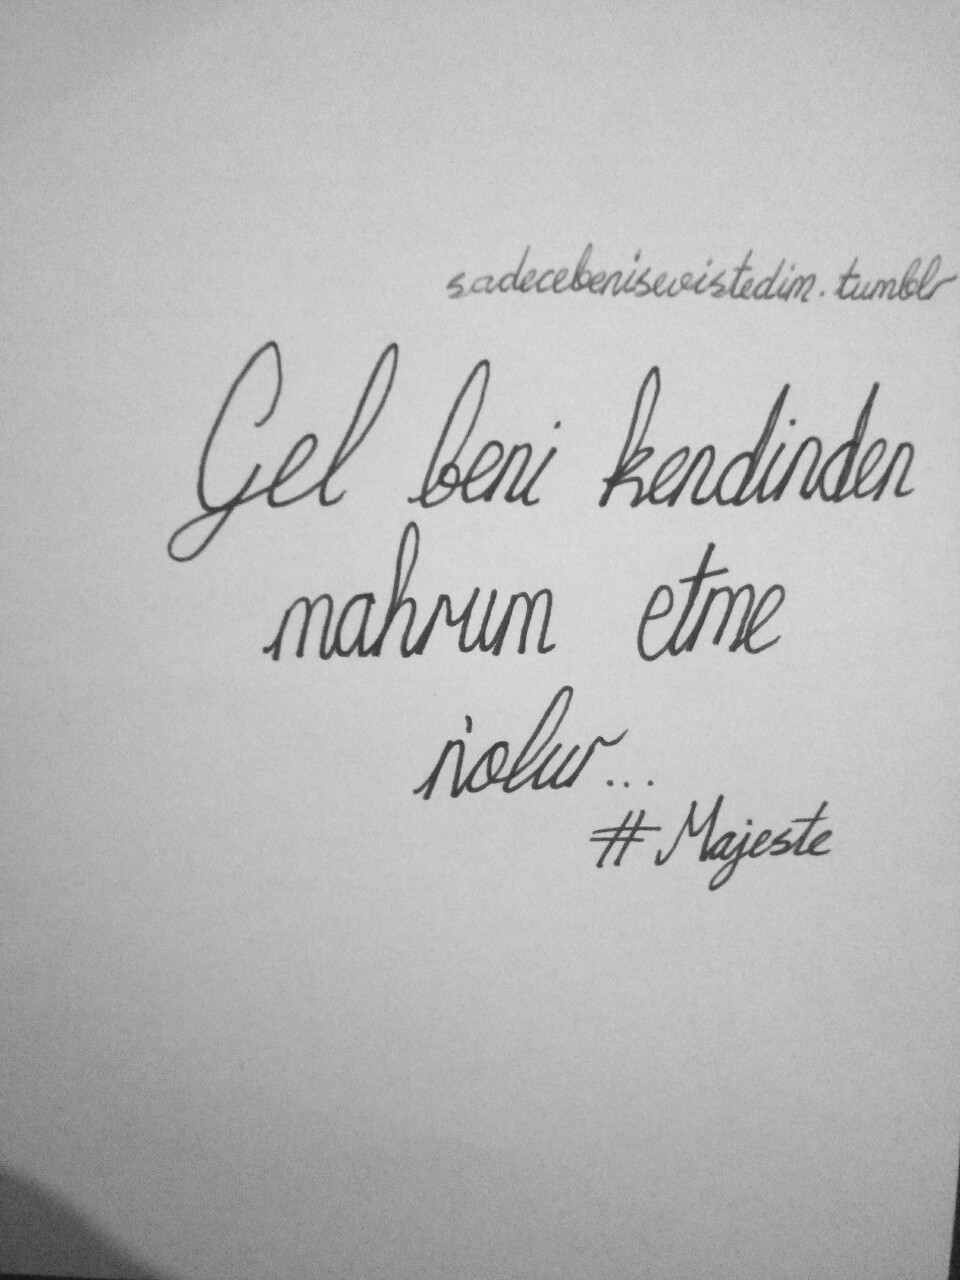 sadecebenisevistedim.tumblr
Gel beni kendinden
mahrum etme
n'olur...
#Majeste